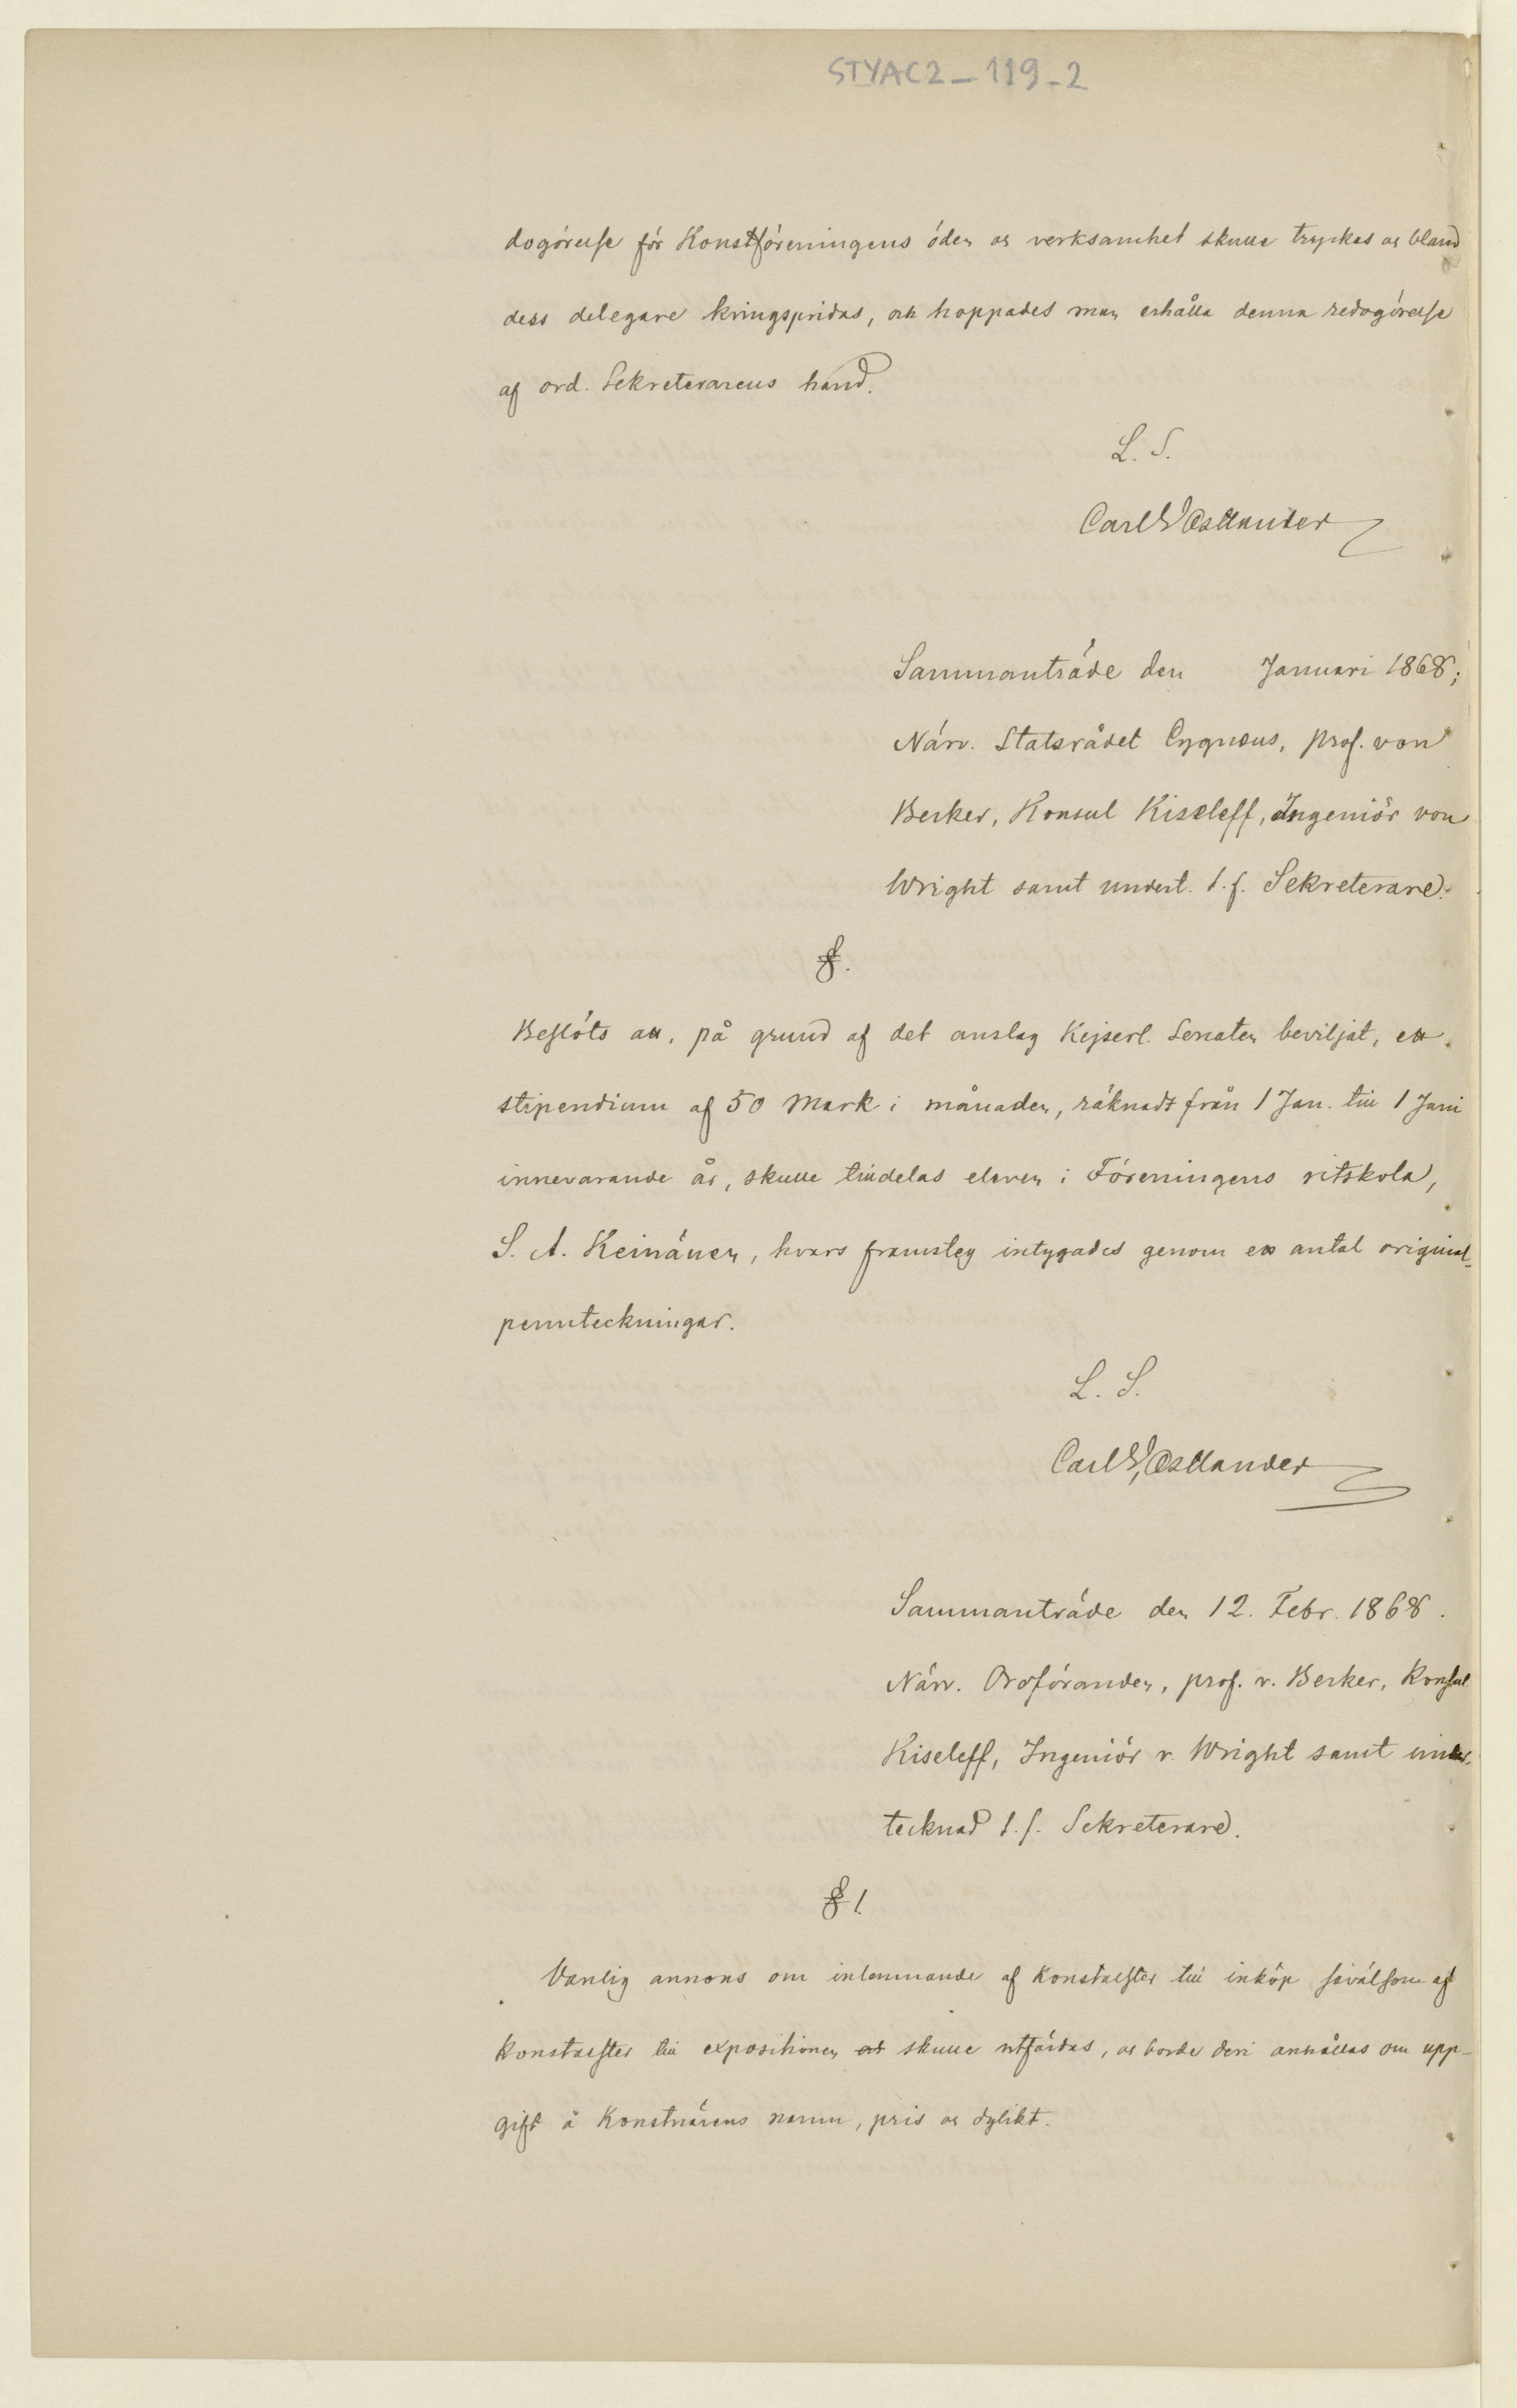 STYAC2_119_2
dogörelse för Konstföreningens öden och verksamhet skulle tryckas och bland
dess delegare kringspridas, och hoppades man erhålla denna redogörelse
af ord. Sekreterarens hand.
L. S.
Carl G Estlander
Sammanträde den Januari 1868;
Närv. Statsrådet Cygnæus, prof. von
Becker, Konsul Kiseleff, Ingeniör von
Wright samt undert. t.f. Sekreterare.
§.
Beslöts att, på grund af det anslag Kejserl. Senaten beviljat, ett
stipendium af 50 Mark i månaden, räknadt från 1 Jan. till 1 Juni
innevarande år, skulle tilldelas eleven i Föreningens ritskola,
S. A. Keinänen, hvars framsteg intygades genom ett antal original-
pennteckningar.
L. S.
Carl G Estlander
Sammanträde den 12. Febr. 1868.
Närv. Ordföranden, prof. v. Becker, Konsul
Kiseleff, Ingeniör v. Wright samt under-
tecknad t.f. Sekreterare.
§ 1.
Vanlig annons om inlemnande af Konstalster till inköp såvälsom af
Konstalster till expositionen skulle utfärdas, och borde deri anhållas om upp-
gift å Konstnärens namn, pris och dylikt.